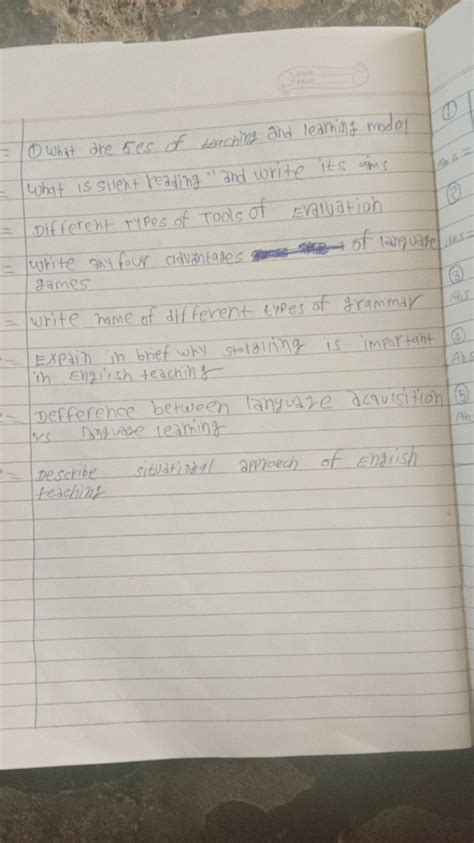 DATE
PAGE
= ① What are 5es of teaching and learning model
= What is silent reading" and write its aims
= Different Types of Tools of Evaluation
= Write any four advantages of language
games
= Write name of different types of grammar
= Expain in brief why is important
in English teaching
= Defference between language acquisition
vs language learning
= Describe situational approech of English
teaching
①
Ans =
②
Ans =
③
Ans
④
Ans
⑤